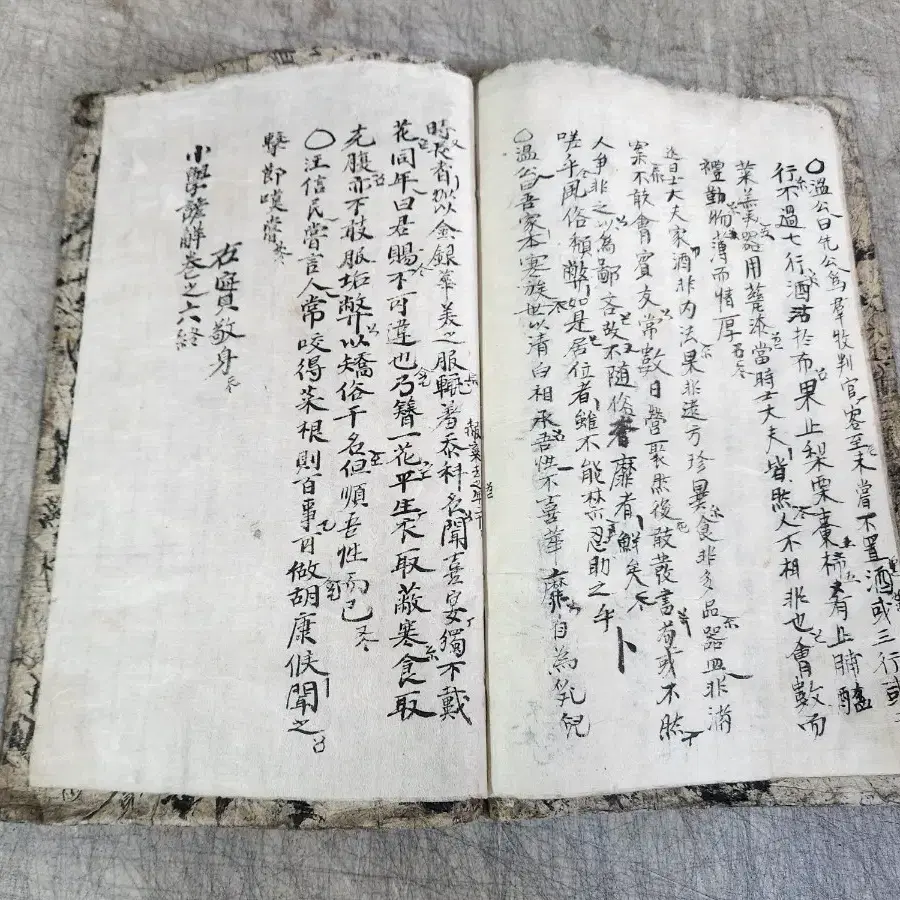 〇溫公曰先公爲羣牧判官客至未嘗不置酒或三行或
行不過七行酒沽於市果止梨栗棗柿肴止脯醢
菜羹器用甆漆當時士大夫皆然人不相非也會數而
禮勤物薄而情厚
近日士大夫家酒非内法果非遠方珍異食非多品器皿非滿
案不敢會賓友常數日營聚然後敢發書苟或不然
人爭非之以爲鄙吝故不隨俗奢靡者鮮矣
嗟乎風俗頹弊如是居位者雖不能禁忍助之乎
〇溫公曰吾家本寒族世以清白相承吾性不喜華靡自爲乳兒
時長者加以金銀華美之服輒羞赧棄去之年二十
忝科名聞喜宴獨不戴
花同年曰君賜不可違也乃簪一花平生衣取蔽寒食取
充腹亦不敢服垢弊以矯俗干名但順吾性而已
〇汪信民嘗言人常咬得菜根則百事可做胡康侯聞之
擊節嘆賞
右實敬身
小學諺解卷之六終